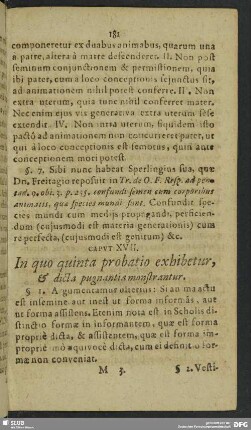 181
componeretur ex duabus animabus, quarum una
a patre, altera à matre descenderet. II. Non post
seminum conjunctionem & permistionem, quia
ibi pater, cum a loco conceptionis sejunctus sit,
ad animationem nihil potest conferre. II. Non
extra uterum, quia tunc nihil conferret mater.
Nec enim ejus vis generativa extra uterum sese
extendit. IV. Non intra uterum, siquidem isto
pacto ad animationem non concurreret pater, ut
qui à loco conceptionis est semotus, quin ante
conceptionem mori potest.
§. 7. Sibi nunc habeat Sperlingius sua, quæ
Dn. Freitagio reposuit in Tr. de O. F. Resp. ad
9. obi. 3. p. 235. confundit semen cum corporibus
animatis, quæ species mundi sunt. Confundit spe-
cies mundi cum mediis propagandi, perficien-
dum (cujusmodi est materia generationis) cum
re perfecta, (cujusmodi est genitum) &c.
CAPUT XVII.
In quo quinta probatio exhibetur,
& dicta pugnantia monstrantur.
§ 1. Argumentamur ulterius: Si anima actu
est in semine, aut inest ut forma informans, aut
ut forma assistens. Etenim nota est in Scholis di-
stinctio formæ in informantem, quæ est forma
propriè dicta, & assistentem, quæ est forma im-
propriè imò æquivocè dicta, cum ei definitio for-
mæ non conveniat.
M 3. § 2. Vesti-
SLUB